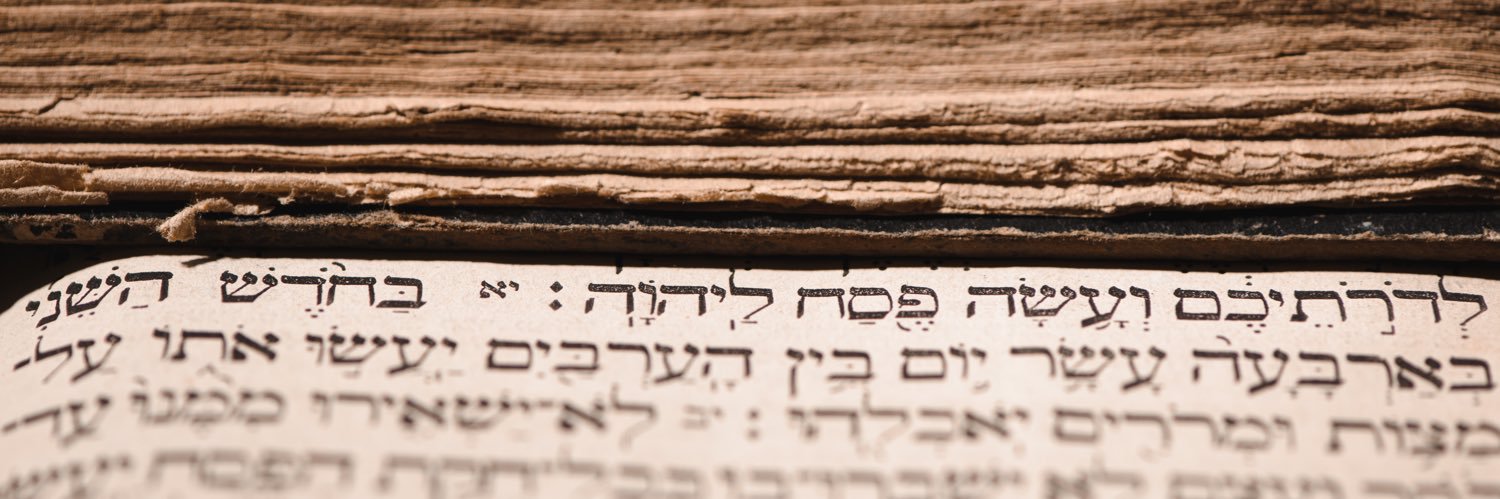 לְדֹרֹ֣תֵיכֶ֔ם וְעָ֥שָׂה פֶ֖סַח לַיהוָֽה׃ יא בַּחֹ֨דֶשׁ הַשֵּׁנִ֜י
בְּאַרְבָּעָ֨ה עָשָׂ֥ר י֛וֹם בֵּ֥ין הָעַרְבַּ֖יִם יַעֲשׂ֣וּ אֹת֑וֹ עַל־
מַצּ֥וֹת וּמְרֹרִ֖ים יֹאכְלֻֽהוּ׃ יב לֹֽא־יַשְׁאִ֤ירוּ מִמֶּ֙נּוּ֙ עַד־
הַפֶּ֖סַח